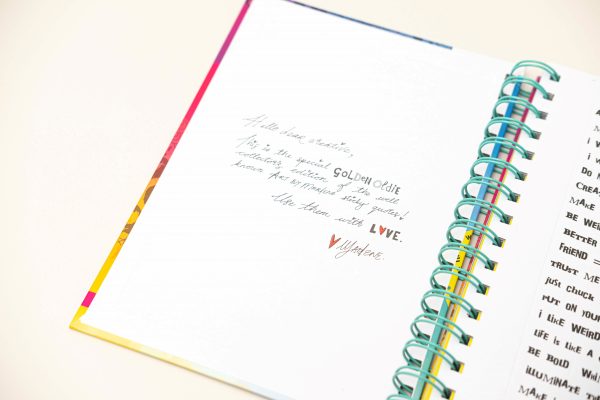 Hello dear creative,
This is the special GOLDEN OLDIE
collectors edition of the well
known Art by Marlene sticky quotes!
Use them with LOVE.
Marlene.
MAKE
i w
i w
DO
CREA
MAKE
BE WEIR
BETTER
FRiEND =
TRUST ME
just CHUCK
PUT ON YOUR
i LiKE WEIRD
LiFE iS LiKE A
BE BOLD
iLLUMiNATE
MAKE